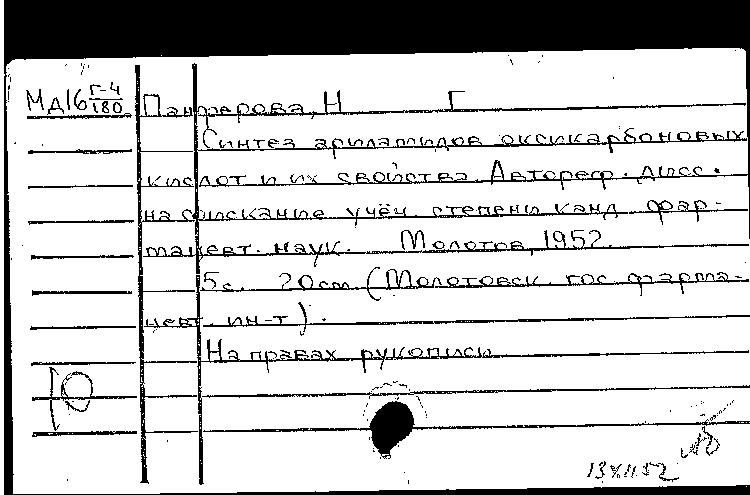 Мд16 Г-4/180 Панферова, Н Г
Синтез ариламидов оксикарбоновых
кислот и их свойства. Автореф. дисс.
на соискание учён. степени канд. фар-
мацевт. наук. Молотов, 1952.
5с. 20см (Молотовск. гос. фарма-
цевт. ин-т).
На правах рукописи
13 XII 52